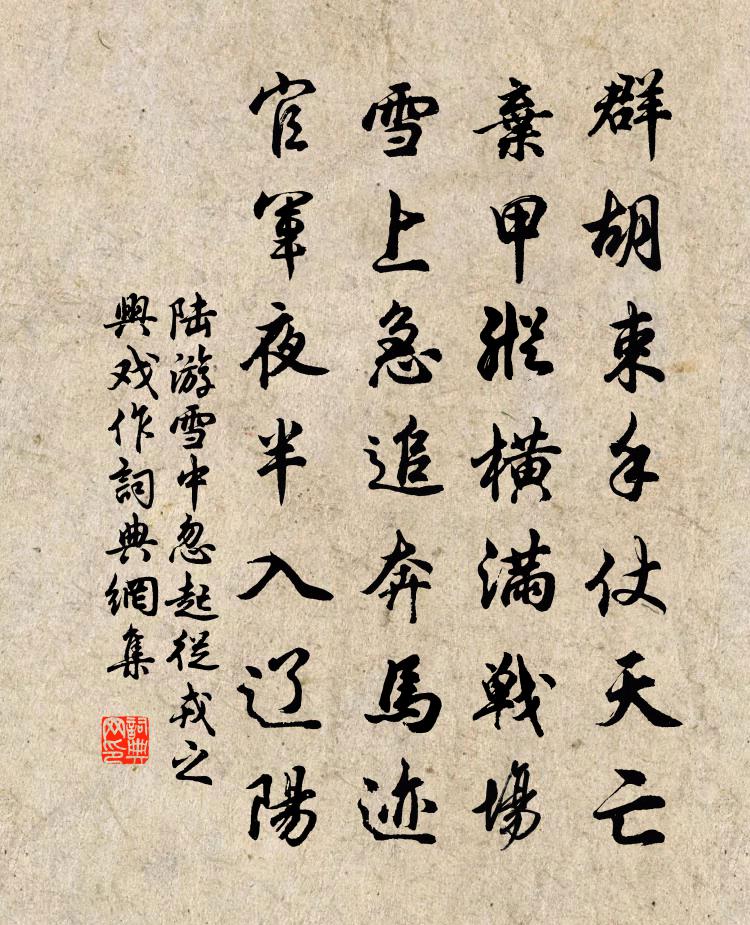 群胡束手仗天亡
棄甲縱橫滿戦場
雪上急追奔馬迹
官軍夜半入辽陽
陆游雪中忽起從戎之
興戏作詞典網集
詞典
网印